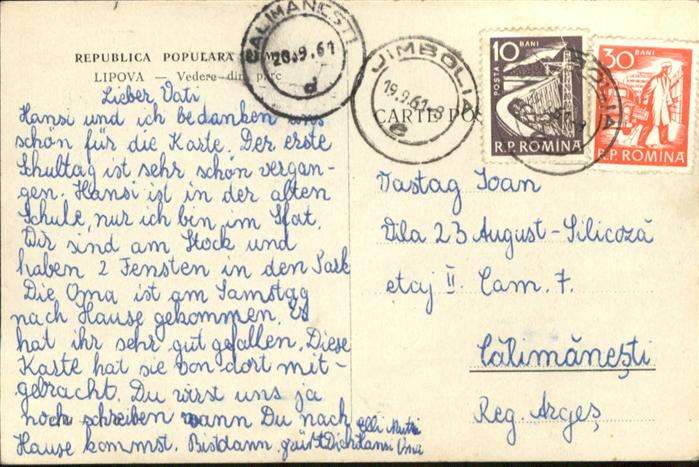 CALIMANESTI
20.9.61
d
JIMBOLIA
19.9.61-8
e
10 BANI
POSTA
R.P. ROMINA
30 BANI
R.P. ROMINA
REPUBLICA POPULARA
LIPOVA — Vedere din parc
CARTE POȘ
Lieber Vati
Hansi und ich bedanken uns
schön für die Karte. Der erste
Schultag ist sehr schön vergan-
gen. Hansi ist in der alten
Schule, nur ich bin im Stat.
Wir sind am Stock und
haben 2 Fensten in den Park
Die Oma ist am Samstag
nach Hause gekommen. Es
hat ihr sehr gut gefallen. Diese
Karte hat sie von dort mit-
gebracht. Du wirst uns ja
noch schreiben wann Du nach
Hause kommst. Bis dann grüst Dich Hansi Oma
Elli Mutti
Tastag Ioan
Vila 23 August-Silicoză
etaj II Cam. 7.
Călimănești
Reg. Argeș